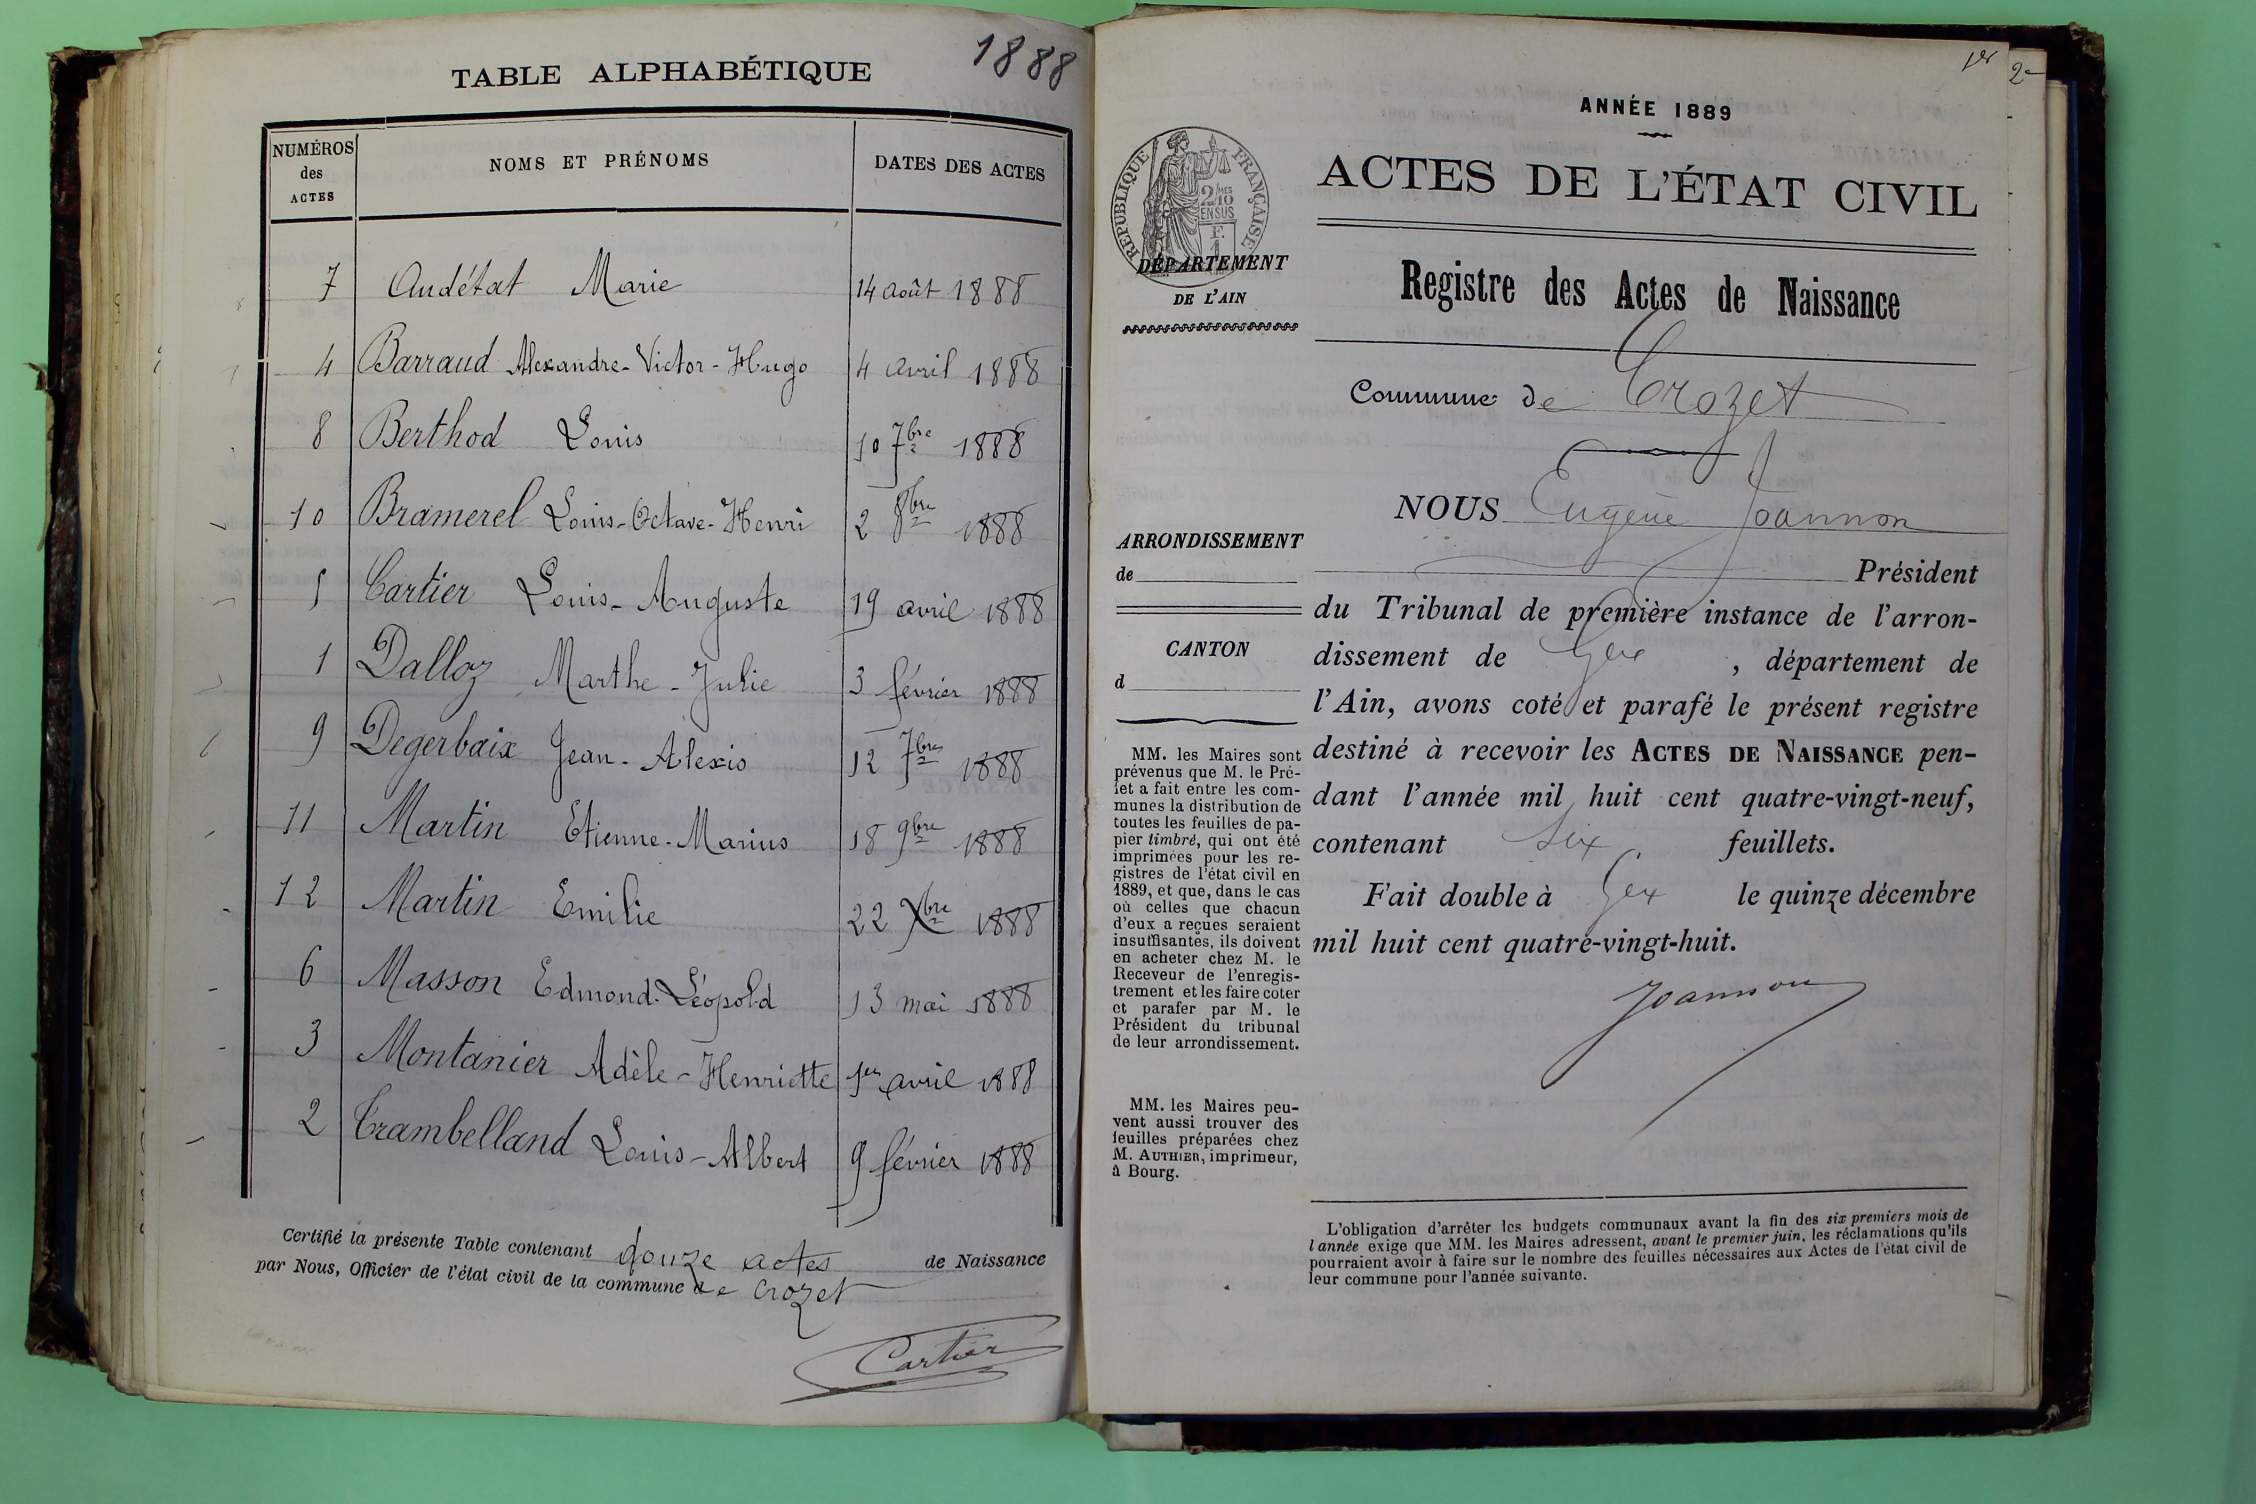 1888
TABLE ALPHABÉTIQUE
NUMÉROS des ACTES NOMS ET PRÉNOMS DATES DES ACTES
7 Audétat Marie 14 août 1888
4 Barraud Alexandre-Victor-Hugo 4 avril 1888
8 Berthod Louis 10 7bre 1888
10 Bramerel Louis-Octave-Henri 2 8bre 1888
5 Cartier Louis-Auguste 19 avril 1888
1 Dalloz Marthe-Julie 3 février 1888
9 Degerbaix Jean-Alexis 12 7bre 1888
11 Martin Etienne-Marius 18 9bre 1888
12 Martin Emilie 22 Xbre 1888
6 Masson Edmond-Léopold 13 mai 1888
3 Montanier Adèle-Henriette 1er avril 1888
2 Trambelland Louis-Albert 9 février 1888
Certifié la présente Table contenant douze actes de Naissance
par Nous, Officier de l'état civil de la commune de Crozet
Cartier
1er
2e
ANNÉE 1889
RÉPUBLIQUE FRANÇAISE
2/10 MES
EN SUS
F.
1
ACTES DE L'ÉTAT CIVIL
DÉPARTEMENT
DE L'AIN
Registre des Actes de Naissance
Commune de Crozet
NOUS Eugène Joannon
Président
du Tribunal de première instance de l'arron-
dissement de Gex, département de
l'Ain, avons coté et parafé le présent registre
destiné à recevoir les ACTES DE NAISSANCE pen-
dant l'année mil huit cent quatre-vingt-neuf,
contenant six feuillets.
Fait double à Gex le quinze décembre
mil huit cent quatre-vingt-huit.
Joannon
ARRONDISSEMENT
de
CANTON
d
MM. les Maires sont
prévenus que M. le Pré-
fet a fait entre les com-
munes la distribution de
toutes les feuilles de pa-
pier timbré, qui ont été
imprimées pour les re-
gistres de l'état civil en
1889, et que, dans le cas
où celles que chacun
d'eux a reçues seraient
insuffisantes, ils doivent
en acheter chez M. le
Receveur de l'enregis-
trement et les faire coter
et parafer par M. le
Président du tribunal
de leur arrondissement.
MM. les Maires peu-
vent aussi trouver des
feuilles préparées chez
M. AUTHIER, imprimeur,
à Bourg.
L'obligation d'arrêter les budgets communaux avant la fin des six premiers mois de
l'année exige que MM. les Maires adressent, avant le premier juin, les réclamations qu'ils
pourraient avoir à faire sur le nombre des feuilles nécessaires aux Actes de l'état civil de
leur commune pour l'année suivante.